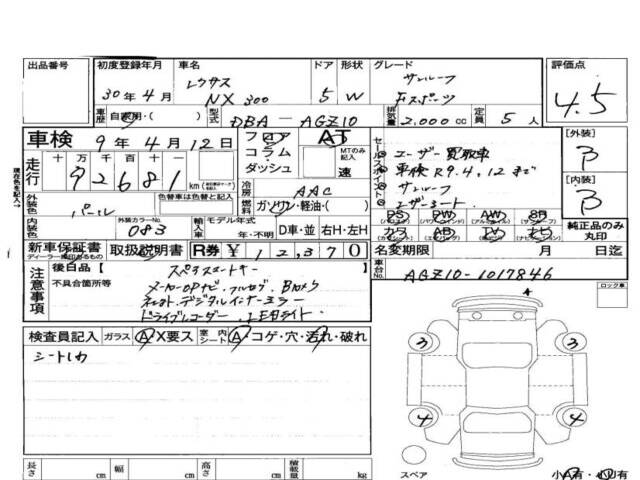 出品番号 初度登録年月 車名 ドア 形状 グレード 評価点
30年4月 レクサス NX300 5 W サンルーフ Fスポーツ 4.5
車歴 自家用・( ) 型式 DBA-AGZ10 排気量 2.000cc 定員 5人
車検 9年4月12日 フロア コラム ダッシュ AT MTのみ記入 速
セールスポイント
ユーザー買取車
車検R9.4.12まで
サンルーフ
レザーシート
[外装] B
[内装] B
走行 十 万 千 百 十 一
92681 km
冷房 AAC
外装色 パール 色替車
燃料 ガソリン・軽油・( )
PS PW AW SR
カワ AB TV ナビ
純正品のみ丸印
内装色 外装カラーNo. 083 輸入車 モデル年式 年・不明 D車・並 右H・左H
新車保証書 取扱説明書 R券 ¥12,370
ディーラー捺印あるもの
名変期限 月 日迄
車台No. AGZ10-1017846
注意事項 後日品【 スペアスマートキー 】
不具合箇所等 メーカーOPナビ.フルセグ.Bカメラ
デジタルインナーミラー
ドライブレコーダー.LEDライト
ロック車
検査員記入 ガラス A X要ス 室内 シート A・コゲ・穴・汚れ・破れ
3 3
4 4
スペア
長さ cm 幅 cm 高さ cm 積載量 kg
小A有・小U有
現在色を記入→